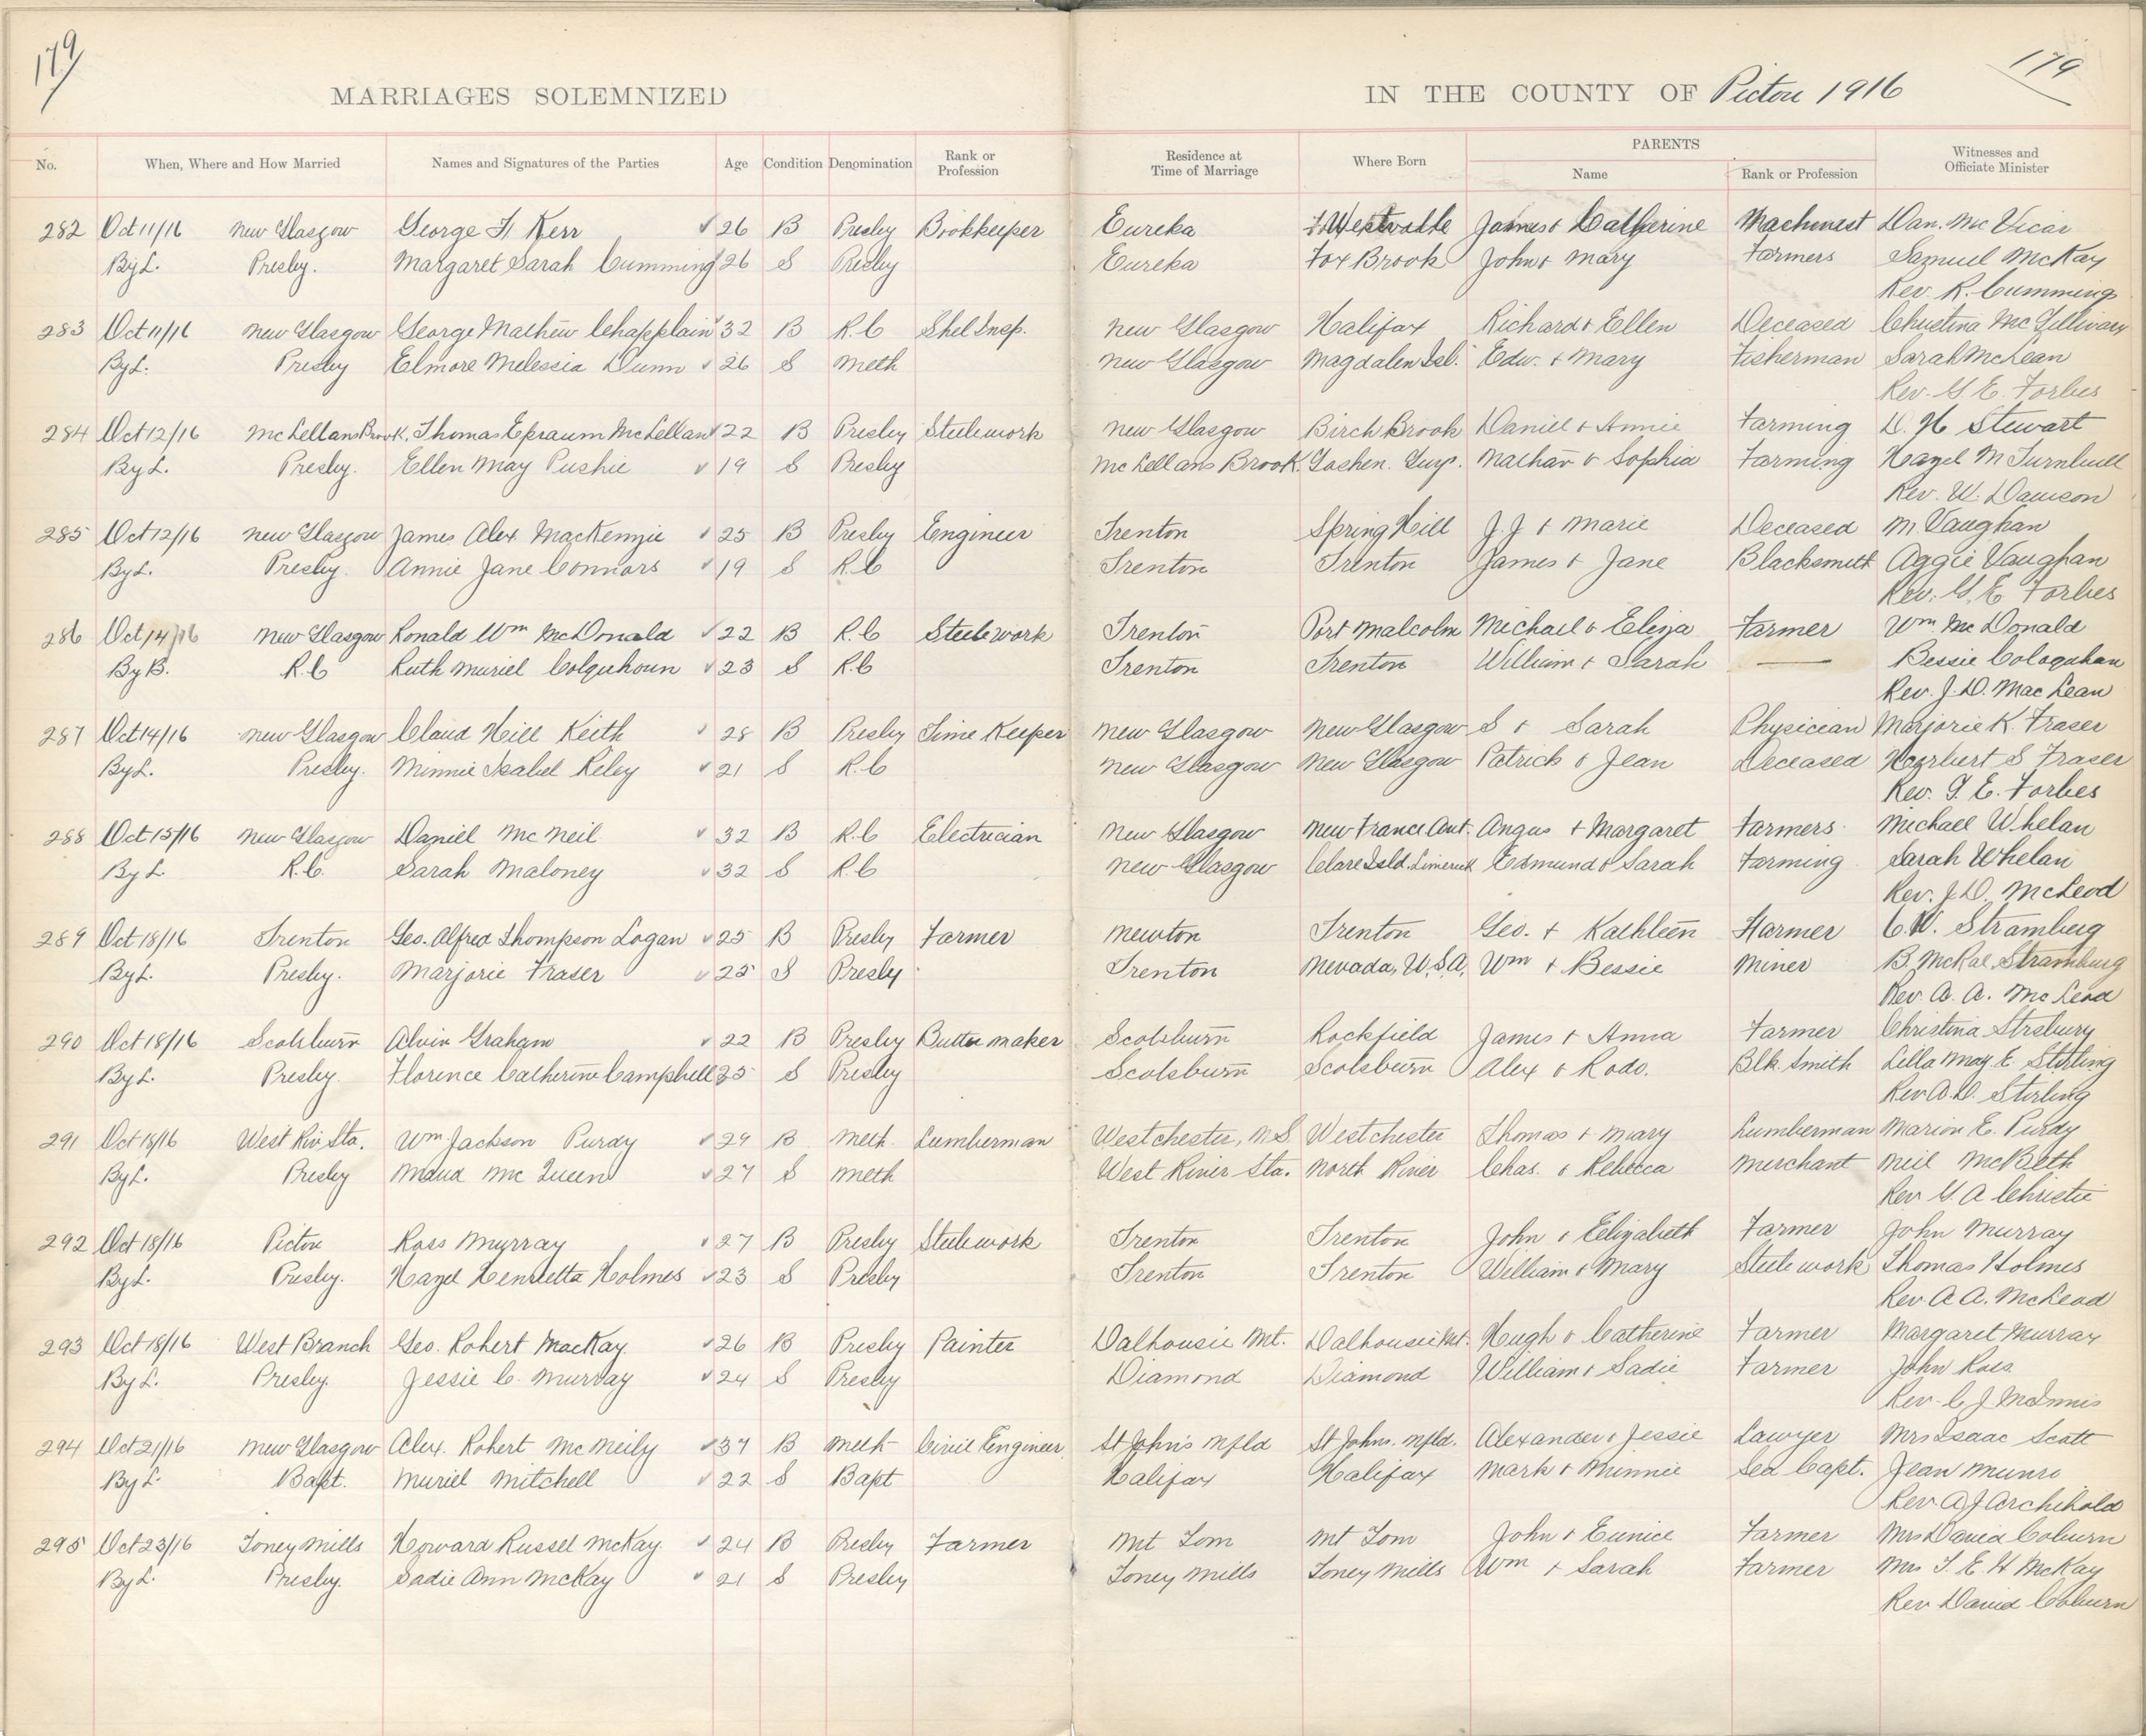 179 179
MARRIAGES SOLEMNIZED IN THE COUNTY OF Pictou 1916
No. When, Where and How Married Names and Signatures of the Parties Age Condition Denomination Rank or Profession Residence at Time of Marriage Where Born PARENTS Name Rank or Profession Witnesses and Officiate Minister
282 Oct 11/16 New Glasgow George F. Kerr ✓ 26 B Presby Bookkeeper Eureka Westville James & Catherine Machinest Dan. McVicar
By L. Presby. Margaret Sarah Cumming ✓ 26 S Presby Eureka Fox Brook John & Mary Farmers Samuel McKay
Rev. R. Cumming
283 Oct 11/16 New Glasgow George Mathew Chapplain ✓ 32 B R.C Shel Insp. New Glasgow Halifax Richard & Ellen Deceased Christina McGillivary
By L. Presby Elmore Melessia Dunn ✓ 26 S Meth New Glasgow Magdalen Isl. Edw. & Mary Fisherman Sarah McLean
Rev. G. E. Forbes
284 Oct 12/16 McLellans Brook. Thomas Epraum McLellan ✓ 22 B Presby Steelework New Glasgow Birch Brook Daniel & Annie Farming D. H Stewart
By L. Presby. Ellen May Pushie ✓ 19 S Presby McLellans Brook. Goshen. Guys. Nathan & Sophia Farming Hazel M Turnbull
Rev. W. Dawson
285 Oct 12/16 New Glasgow James Alex MacKenzie ✓ 25 B Presby Engineer Trenton Spring Hill J. J & Marie Deceased M Vaughan
By L. Presby. Annie Jane Connors ✓ 19 S R.C Trenton Trenton James & Jane Blacksmith Aggie Vaughan
Rev. G. E Forbes
286 Oct 14/16 New Glasgow Ronald Wm McDonald ✓ 22 B R.C Steelework Trenton Port Malcolm Michael & Eliza Farmer Wm McDonald
By B. R.C Ruth Muriel Colquhoun ✓ 23 S R.C Trenton Trenton William & Sarah — Bessie Coloquhan
Rev. J. D. MacLean
287 Oct 14/16 New Glasgow Claud Hill Keith ✓ 28 B Presby Time Keeper New Glasgow New Glasgow S & Sarah Physician Marjorie K. Fraser
By L. Presby. Minnie Isabel Riley ✓ 21 S R.C New Glasgow New Glasgow Patrick & Jean Deceased Herbert S Fraser
Rev. G. E. Forbes
288 Oct 15/16 New Glasgow Daniel McNeil ✓ 32 B R.C Electrician New Glasgow New France Ant. Angus & Margaret Farmers Michael Whelan
By L R.C. Sarah Maloney ✓ 32 S R.C New Glasgow Clare Isld. Limerick Edmund & Sarah Farming Sarah Whelan
Rev. J. D. McLeod
289 Oct 18/16 Trenton Geo. Alfred Thompson Logan ✓ 25 B Presby Farmer Newton Trenton Geo. & Kathleen Farmer C. W. Stramberg
By L. Presby. Marjorie Fraser ✓ 25 S Presby Trenton Nevada, U.S.A. Wm & Bessie Miner B. McRae Stramburg
Rev. A. A. McLeod
290 Oct 18/16 Scotsburn Alvin Graham ✓ 22 B Presby Butter maker Scotsburn Rockfield James & Anna Farmer Christina
By L. Presby. Florence Catherine Campbell 25 S Presby Scotsburn Scotsburn Alex & Rodo. Blk. Smith Lilla May. E. Stirling
Rev A. D. Stirling
291 Oct 18/16 West Riv Sta. Wm Jackson Purdy ✓ 29 B Meth Lumberman Westchester, N.S. Westchester Thomas & Mary Lumberman Marion E. Purdy
By L. Presby Maud McQueen ✓ 27 S Meth West River Sta. North River Chas. & Rebecca Merchant Neil McBeth
Rev G A Christie
292 Oct 18/16 Pictou Ross Murray ✓ 27 B Presby Steelework Trenton Trenton John & Eelizabeth Farmer John Murray
By L. Presby. Hazel Henrietta Holmes ✓ 23 S Presby Trenton Trenton William & Mary Steelework Thomas Holmes
Rev A A. McLeod
293 Oct 18/16 West Branch Geo. Robert MacKay ✓ 26 B Presby Painter Dalhousie Mt. Dalhousie Mt. Hugh & Catherine Farmer Margaret Murray
By L. Presby. Jessie C. Murray ✓ 24 S Presby Diamond Diamond William & Sadie Farmer John Ross
Rev. C J McInnis
294 Oct 21/16 New Glasgow Alex. Robert McNeily ✓ 37 B Meth Civil Engineer St John's Nfld St Johns. Nfld. Alexander & Jessie Lawyer Mrs Isaac Scott
By L Bapt. Muriel Mitchell ✓ 22 S Bapt Halifax Halifax Mark & Minnie Sea Capt. Jean Munro
Rev. A J Archibald
295 Oct 23/16 Toney Mills Howard Russel McKay ✓ 24 B Presby Farmer Mt Tom Mt Tom John & Eunice Farmer Mrs David Coburn
By L. Presby. Sadie Ann McKay ✓ 21 S Presby Toney Mills Toney Mills Wm & Sarah Farmer Mrs T. E. H McKay
Rev David Coburn